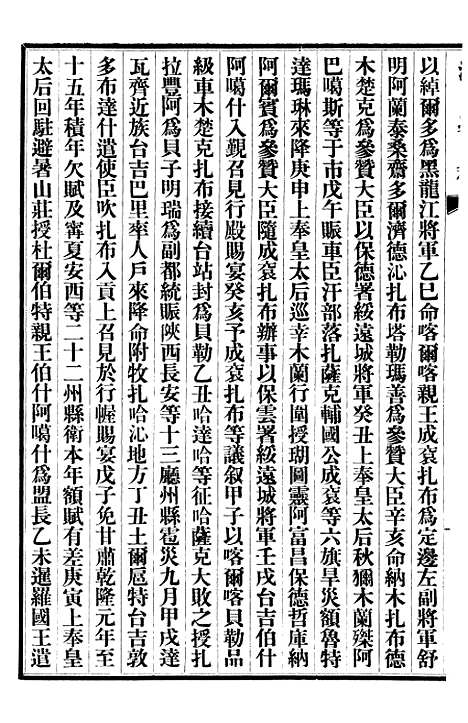 以綽爾多爲黑龍江將軍乙巳命喀爾喀親王成衮扎布爲定邊左副將軍舒
明阿蘭泰桑齋多爾濟德沁扎布塔勒瑪善爲參贊大臣辛亥命納木扎布德
木楚克爲參贊大臣以保德署綏遠城將軍癸丑上奉皇太后秋獮木蘭桀阿
巴噶斯等于市戊午賑車臣汗部落扎薩克輔國公成衮等六旗旱災額魯特
達瑪琳來降庚申上奉皇太后巡幸木蘭行圍授瑚圖靈阿富昌保德哲庫納
阿爾賓爲參贊大臣隨成衮扎布辦事以保雲署綏遠城將軍壬戌台吉伯什
阿噶什入覲召見行殿賜宴癸亥予成衮扎布等議敘甲子以喀爾喀貝勒品
級車木楚克扎布接續台站封爲貝勒乙丑哈達哈等征哈薩克大敗之授扎
拉豐阿爲貝子明瑞爲副都統賑陝西長安等十三廳州縣雹災九月甲戌達
瓦齊近族台吉巴里率人戶來降命附牧扎哈沁地方丁丑土爾扈特台吉敦
多布達什遣使臣吹扎布入貢上召見於行幄賜宴戊子免甘肅乾隆元年至
十五年積年欠賦及甯夏安西等二十二州縣衛本年額賦有差庚寅上奉皇
太后回駐避暑山莊授杜爾伯特親王伯什阿噶什爲盟長乙未暹羅國王遣